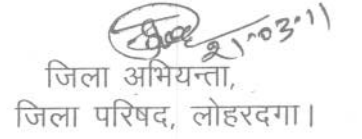 21-03-11
जिला अभियन्ता,
जिला परिषद, लोहरदगा।